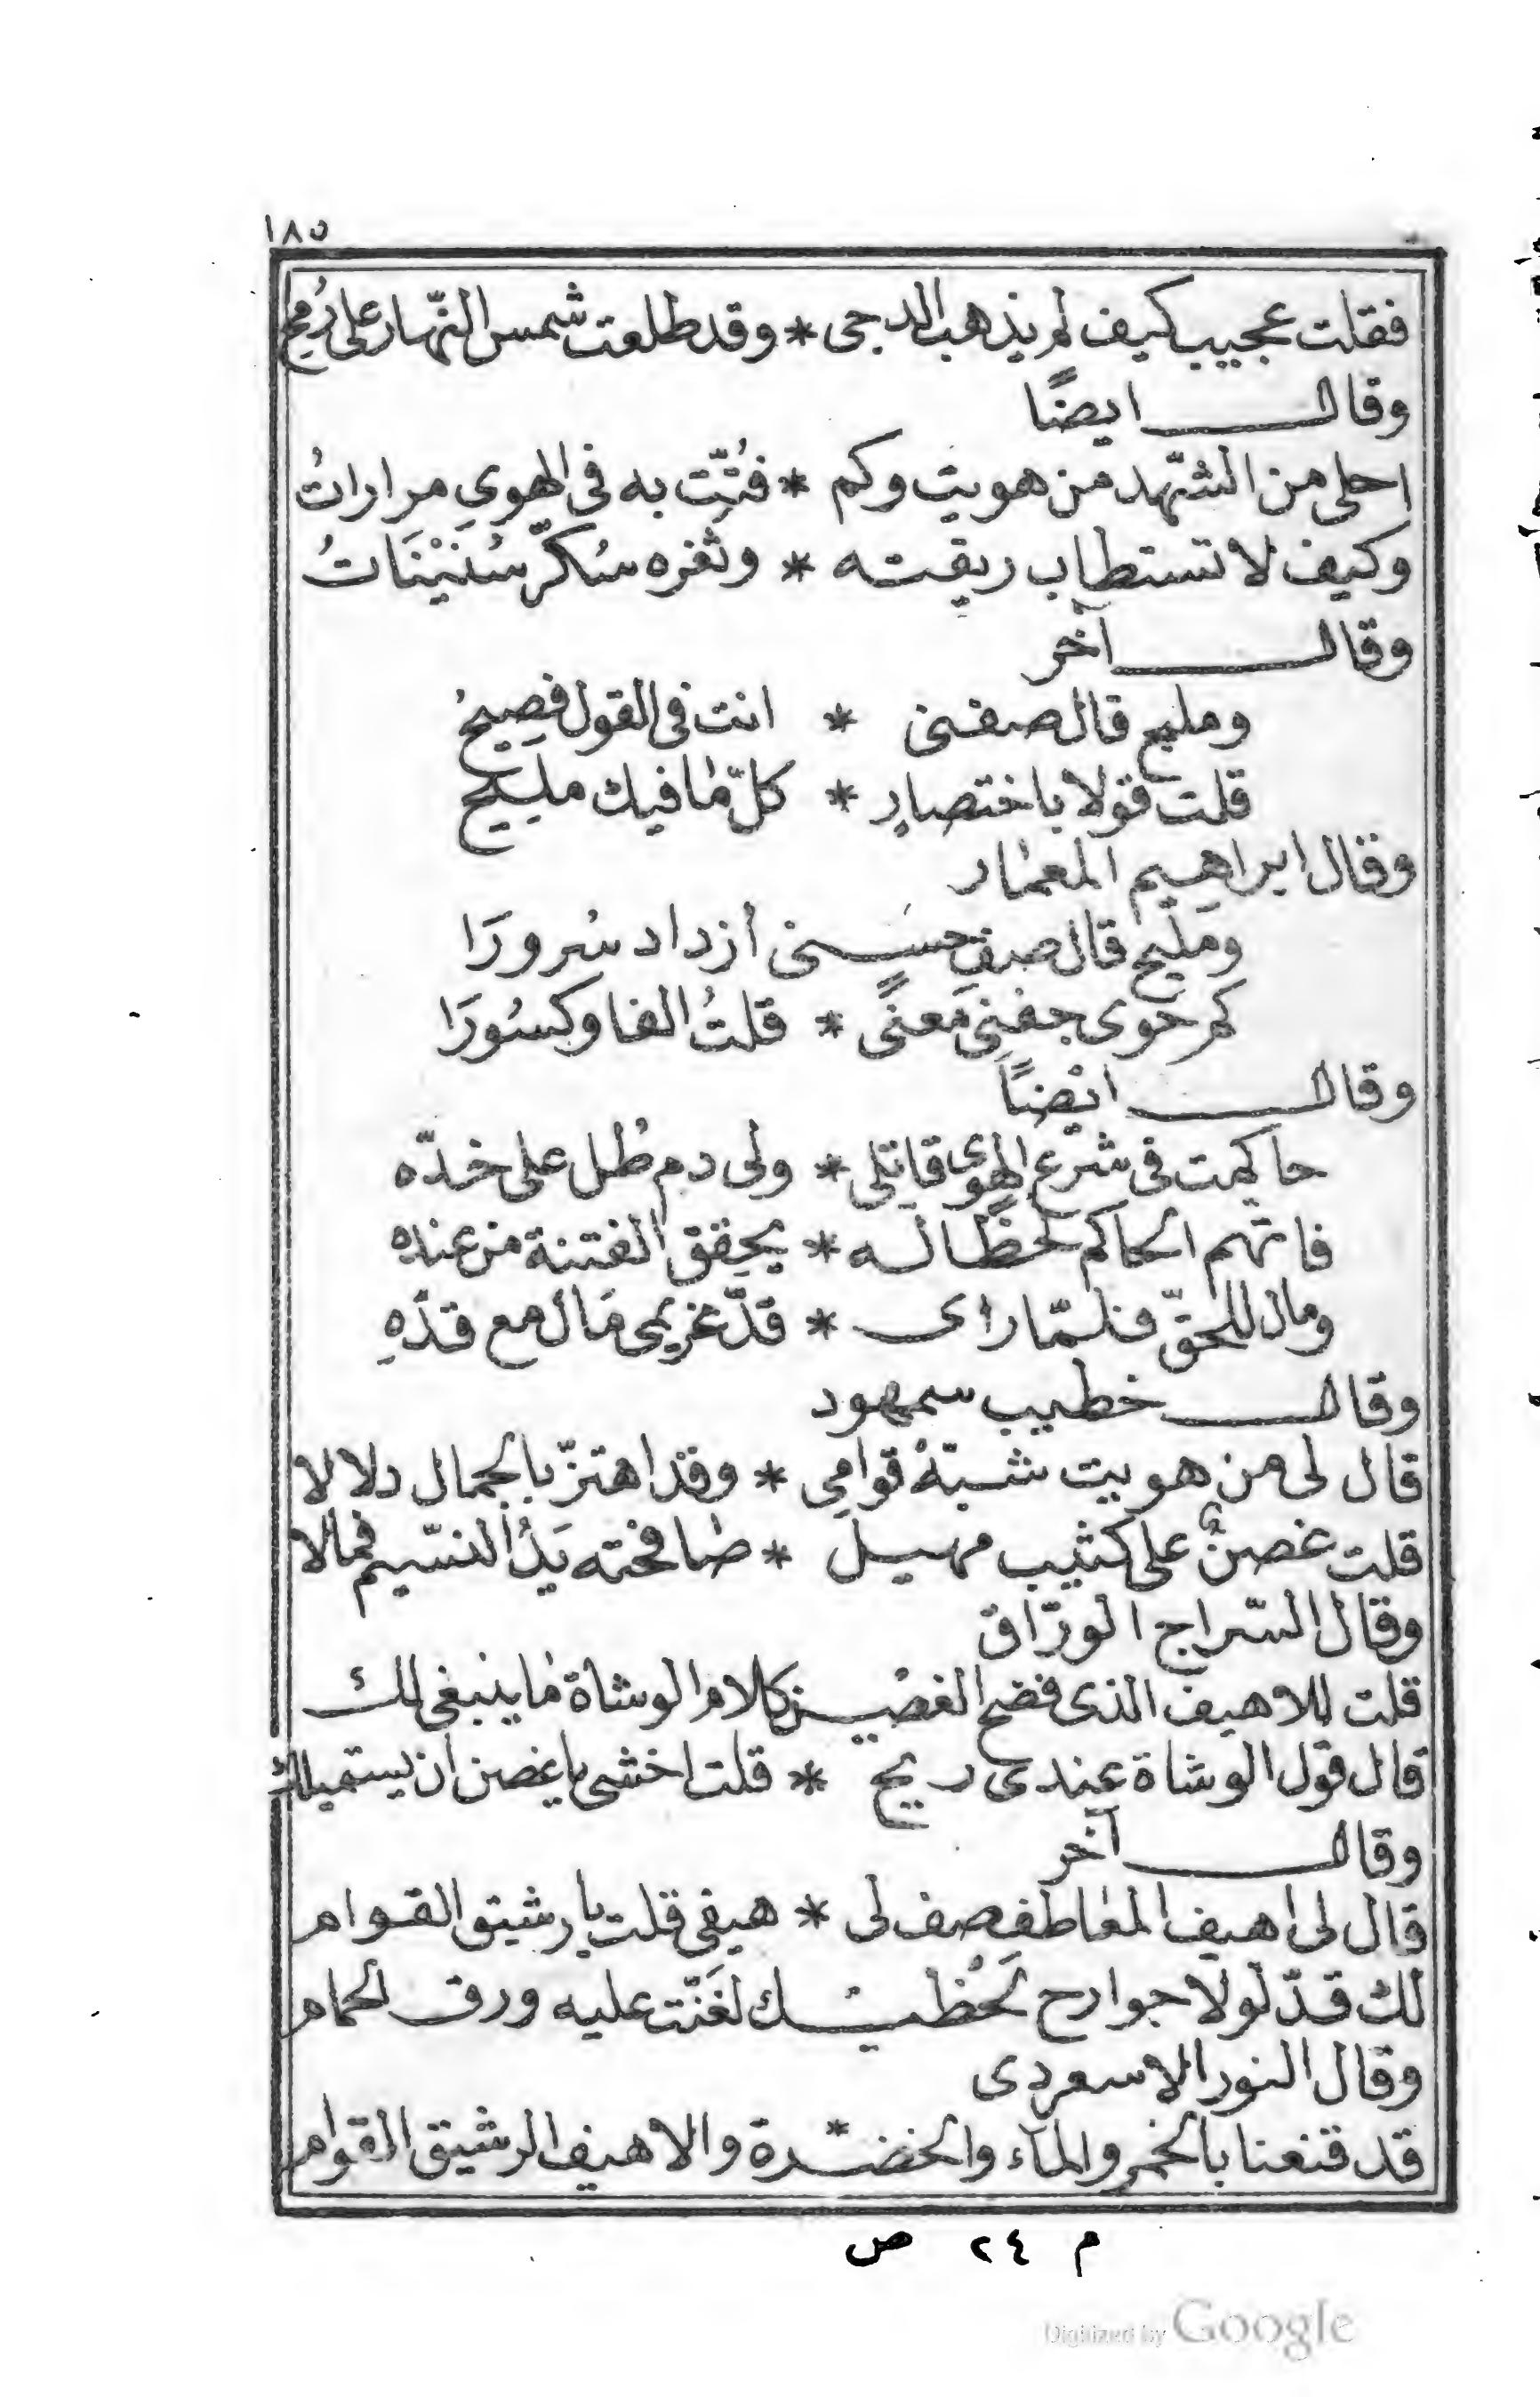 ١٨٥
فقلت عجيب كيف لم يذهب الدجى * وقد طلعت شمس النّهار على رُمح
وقال ايضًا
احلى من الشّهد من هويت وكم * فُتِّت به فى الهوي مراراتُ
وكيف لا تستطاب ريقته * وثغره سُكّر سُنَيْنَاتُ
وقال آخر
ومليح قال صفنى * انت فى القول فصِيحُ
قلت قولا باختصارٍ * كلّ ما فيك مليح
وقال ابراهيم المعمار
ومَليح قال صِف حسنى أزداد سُرورَا
كم حوى جفنى مَعنىً * قلتُ الفا وكسُورَا
وقال ايْضاً
حاكمت فى شرع الهوى قاتِلى * ولى دم طُل على خدّه
فاتهم الحاكم لحظًا له * يحِقق الفتنة من عندِهِ
ومال للحقّ فلمّا راى * قدّ غريمى مَال مع قدّهِ
وقال خطيب سمهود
قال لى من هويت شبّهْ قوامِي * وقد اهتزّ بالجمال دلالا
قلت غصنٌ على كثيب مهيل * صافحته يَدُ النسّيم فمالا
وقال السّراج الورّاق
قلت للاهيف الذى فضح الغصْن كلام الوشاة ما ينبغى لك
قال قول الوشاة عندى ريح * قلت اخشى يا غصن أن يستميلك
وقال آخر
قال لى اهيف المعاطف صف لى * هيفي قلت يا رشيق القوام
لك قدّ لولا جوارح لَحْظيْك لغَنّت عليه ورق الحمام
وقال النور الاسعردى
قد قنعنا بالخمر والمآء والخضرة والاهيف الرشيق القوام
م ٢٤ ص
Digitized by Google